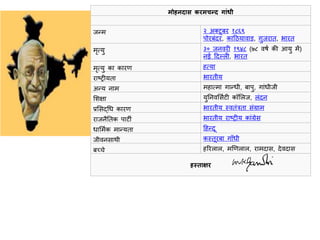 मोहनदास करमचन्द गांधी
जन्म २ अक्टूबर १८६९
पोरबंदर, काठियावाड़, गुजरात, भारत
मृत्यु ३० जनवरी १९४८ (७८ वर्ष की आयु में)
नई दिल्ली, भारत
मृत्यु का कारण हत्या
राष्ट्रीयता भारतीय
अन्य नाम महात्मा गान्धी, बापू, गांधीजी
शिक्षा युनिवर्सिटी कॉलिज, लंदन
प्रसिद्धि कारण भारतीय स्वतंत्रता संग्राम
राजनैतिक पार्टी भारतीय राष्ट्रीय कांग्रेस
धार्मिक मान्यता हिन्दू
जीवनसाथी कस्तूरबा गाँधी
बच्चे हरिलाल, मणिलाल, रामदास, देवदास
हस्ताक्षर